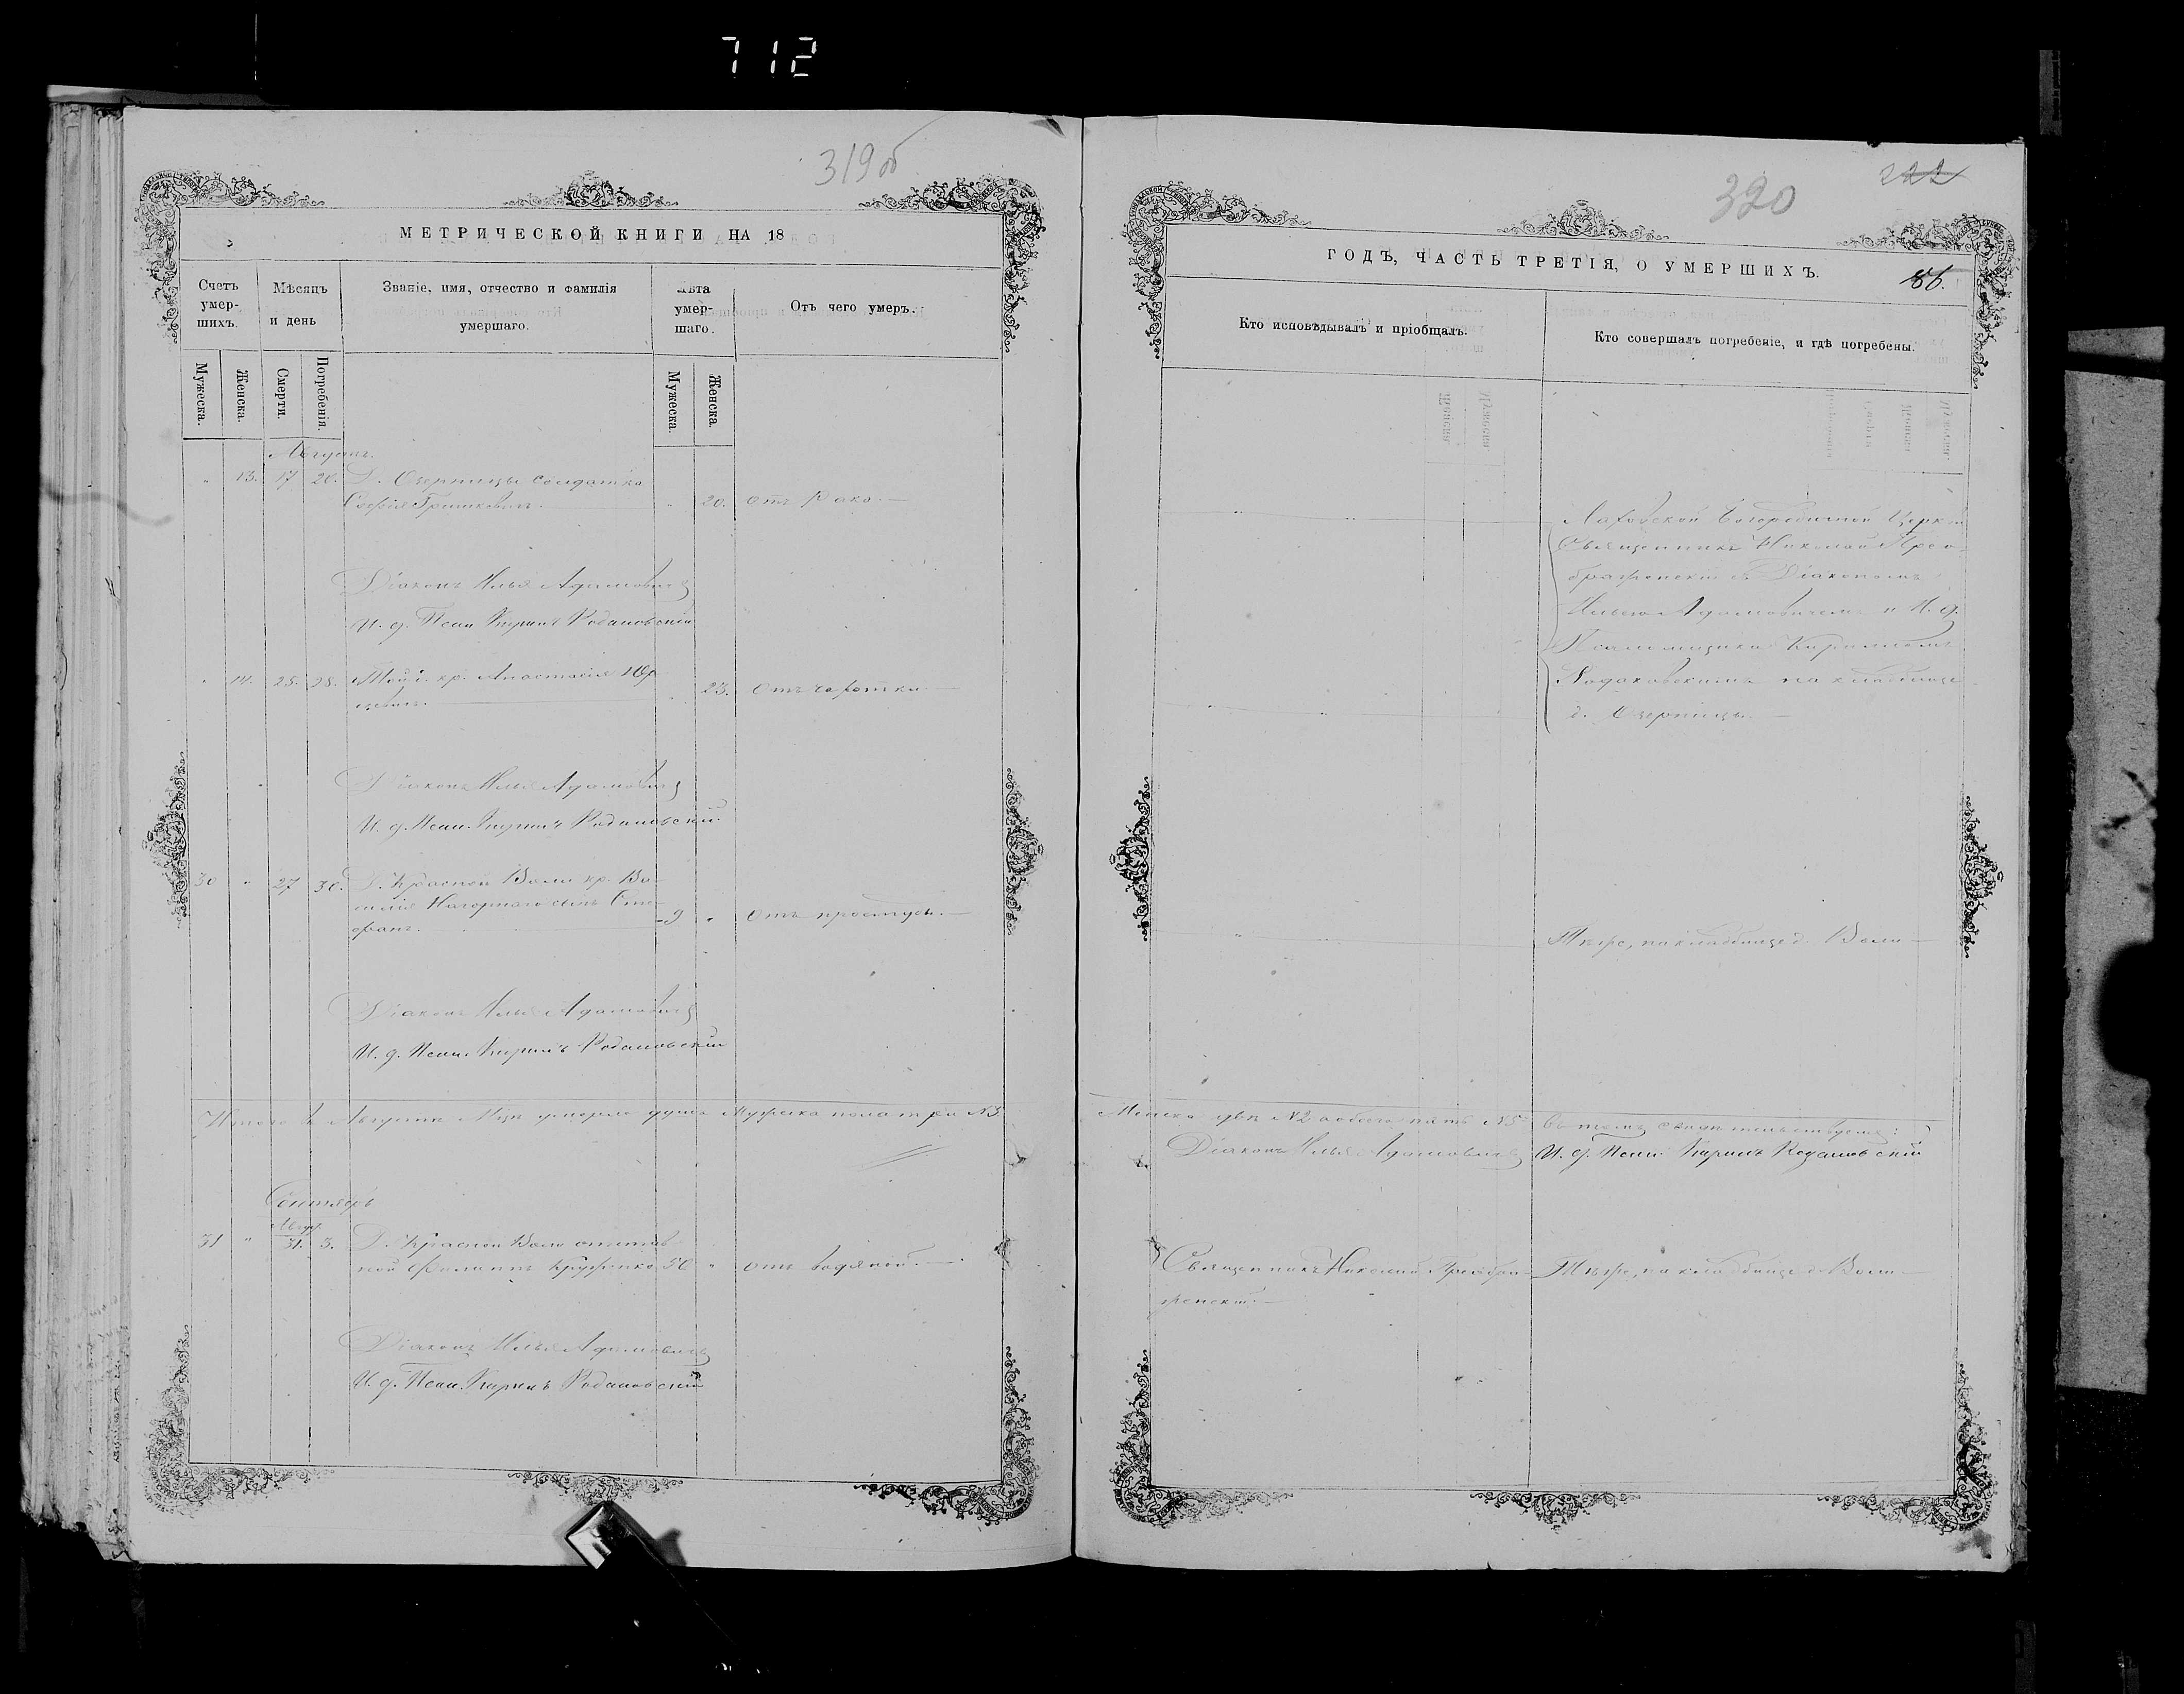 712
319об
МЕТРИЧЕСКОЙ КНИГИ НА 18
Счетъ умер-шихъ.
Мѣсяцъ и день
Званіе, имя, отчество и фамилія умершаго.
Лѣта умер-шаго.
Отъ чего умеръ.
Мужеска.
Женска.
Смерти.
Погребенія.
Мужеска.
Женска.
Августъ.
" 13. 17 20. Д. Озерницы солдатка
Софія Гришкевичъ. " 20. отъ рака.
Діаконъ Илья Адамовичъ
И. д. Псал. Кирилъ Родаковскій
" 14. 25. 28. Той д. кр. Анастасія
" 23. Отъ чахотки.
Діаконъ Илья Адамовичъ
И. д. Псал. Кирилъ Родаковскій
30 " 27 30. Д. Красной Воли кр. Ва-
силія Нагорнаго сынъ Сте-
фанъ. 9 " Отъ простуды.
Діаконъ Илья Адамовичъ
И. д. Псал. Кирилъ Родаковскій
Итого въ Августѣ М-цѣ умерло душъ Мужеска пола три №3
Сентябрь
Авгус.
31 " 31. 3. Д. Красной Воли отстав-
ной Филиппъ 50 " отъ водяной.
Діаконъ Илья Адамовичъ
И. д. Псал. Кирилъ Родаковскій
320
222
86.
ГОДЪ, ЧАСТЬ ТРЕТІЯ, О УМЕРШИХЪ.
Кто исповѣдывалъ и пріобщалъ.
Кто совершалъ погребеніе, и гдѣ погребены.
Богородичной Церкви
Священникъ Николай Прео-
браженскій съ Діакономъ
Ильею Адамовичемъ и И. д.
Псаломщика Кирилломъ
Родаковскимъ на кладбищѣ
д. Озерницы.
Тѣже, на кладбищѣ д. Воли
Женска двѣ №2 а обоего пять №5 Въ томъ свидѣтельствуемъ:
Діаконъ Илья Адамовичъ И. д. Псал. Кирилъ Родаковскій
Священникъ Николай Преобра-
женскій.
Тѣже, на кладбищѣ д. Воли